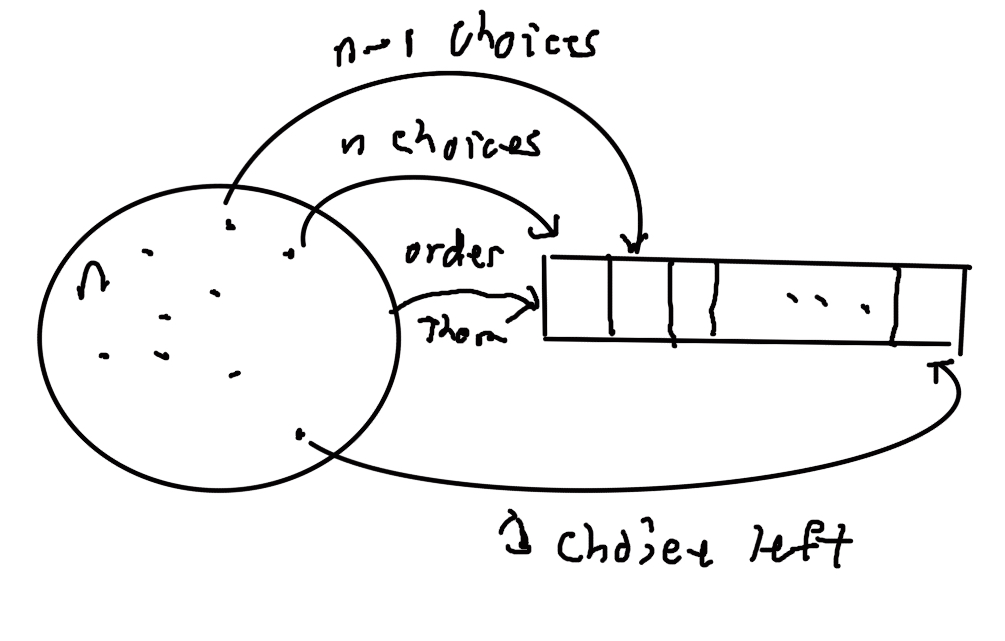 n-1 choices
n choices
n
order
Them
1 choice left